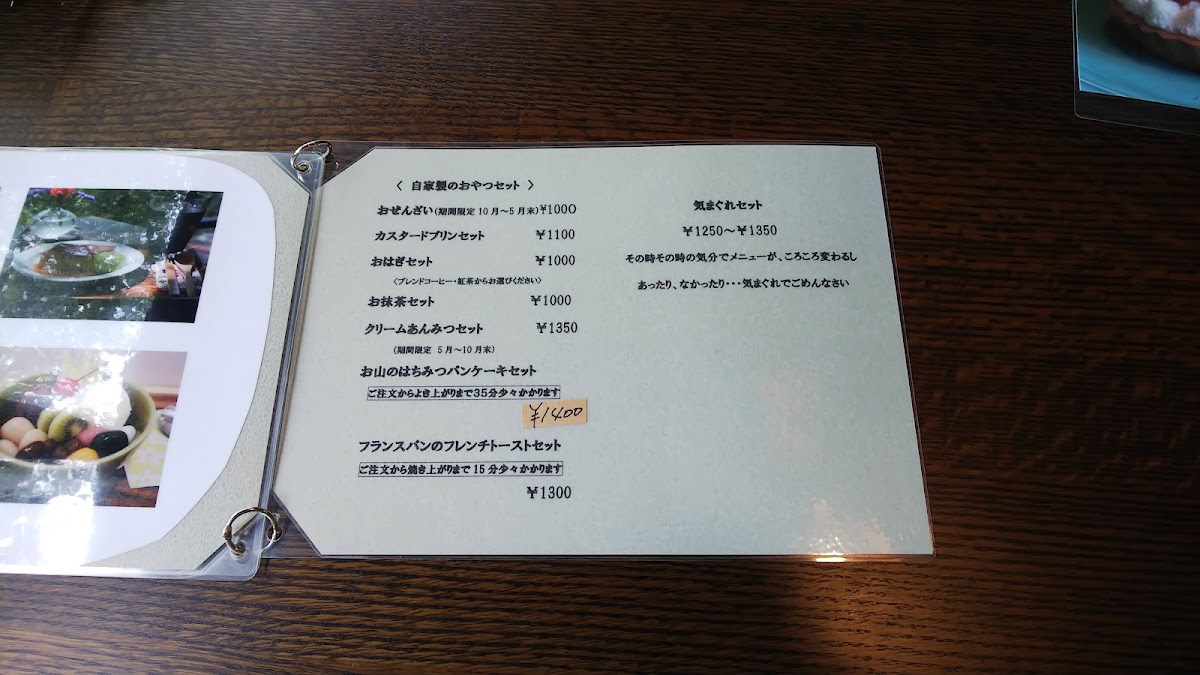 〈 自家製のおやつセット 〉
おぜんざい(期間限定 10月～5月末)￥1000
カスタードプリンセット ￥1100
おはぎセット ￥1000
〈ブレンドコーヒー・紅茶からお選びください〉
お抹茶セット ￥1000
クリームあんみつセット ￥1350
(期間限定 5月～10月末)
お山のはちみつパンケーキセット
ご注文からよき上がりまで35分少々かかります
￥1400
フランスパンのフレンチトーストセット
ご注文から焼き上がりまで15分少々かかります
￥1300
気まぐれセット
￥1250～￥1350
その時その時の気分でメニューが、ころころ変わるし
あったり、なかったり・・・気まぐれでごめんなさい